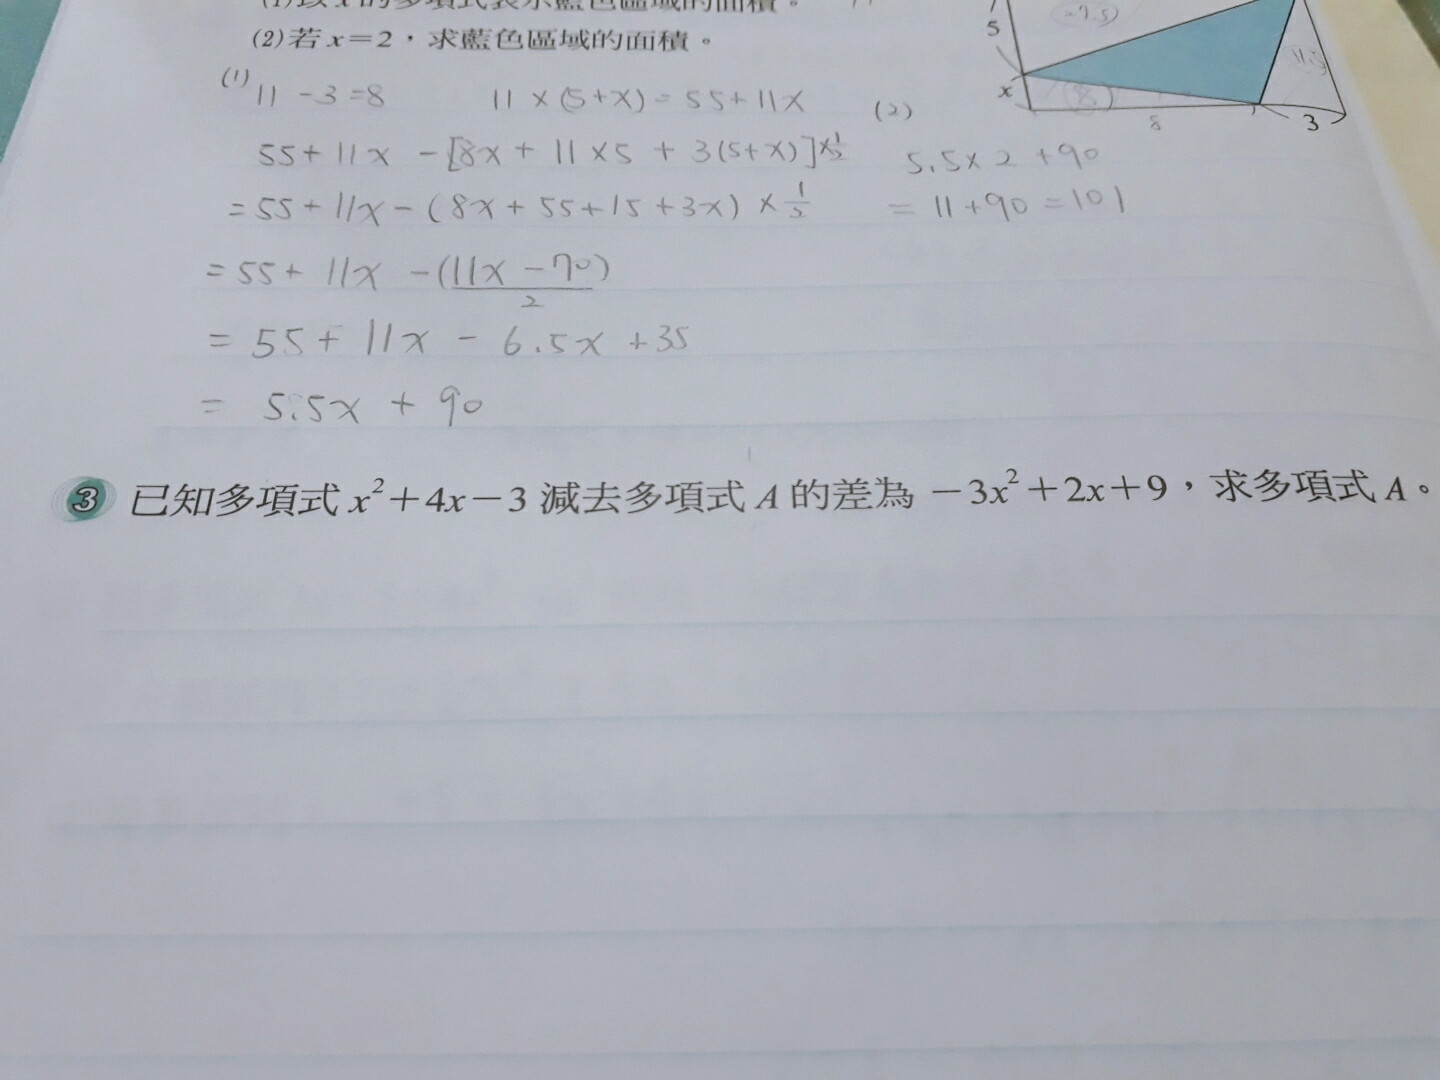 (1)以 x 的多項式表示藍色區域的面積。
(2)若 x=2，求藍色區域的面積。
5
x
8
3
(1)
11 - 3 = 8
11 × (5+x) = 55+11x
(2)
55 + 11x - [8x + 11×5 + 3(5+x)]×½
5.5×2 + 90
= 55 + 11x - (8x + 55+15 + 3x) × ½
= 11+90 = 101
= 55 + 11x - (11x - 70)/2
= 55 + 11x - 6.5x + 35
= 5.5x + 90
3 已知多項式 x²+4x-3 減去多項式 A 的差為 -3x²+2x+9，求多項式 A。